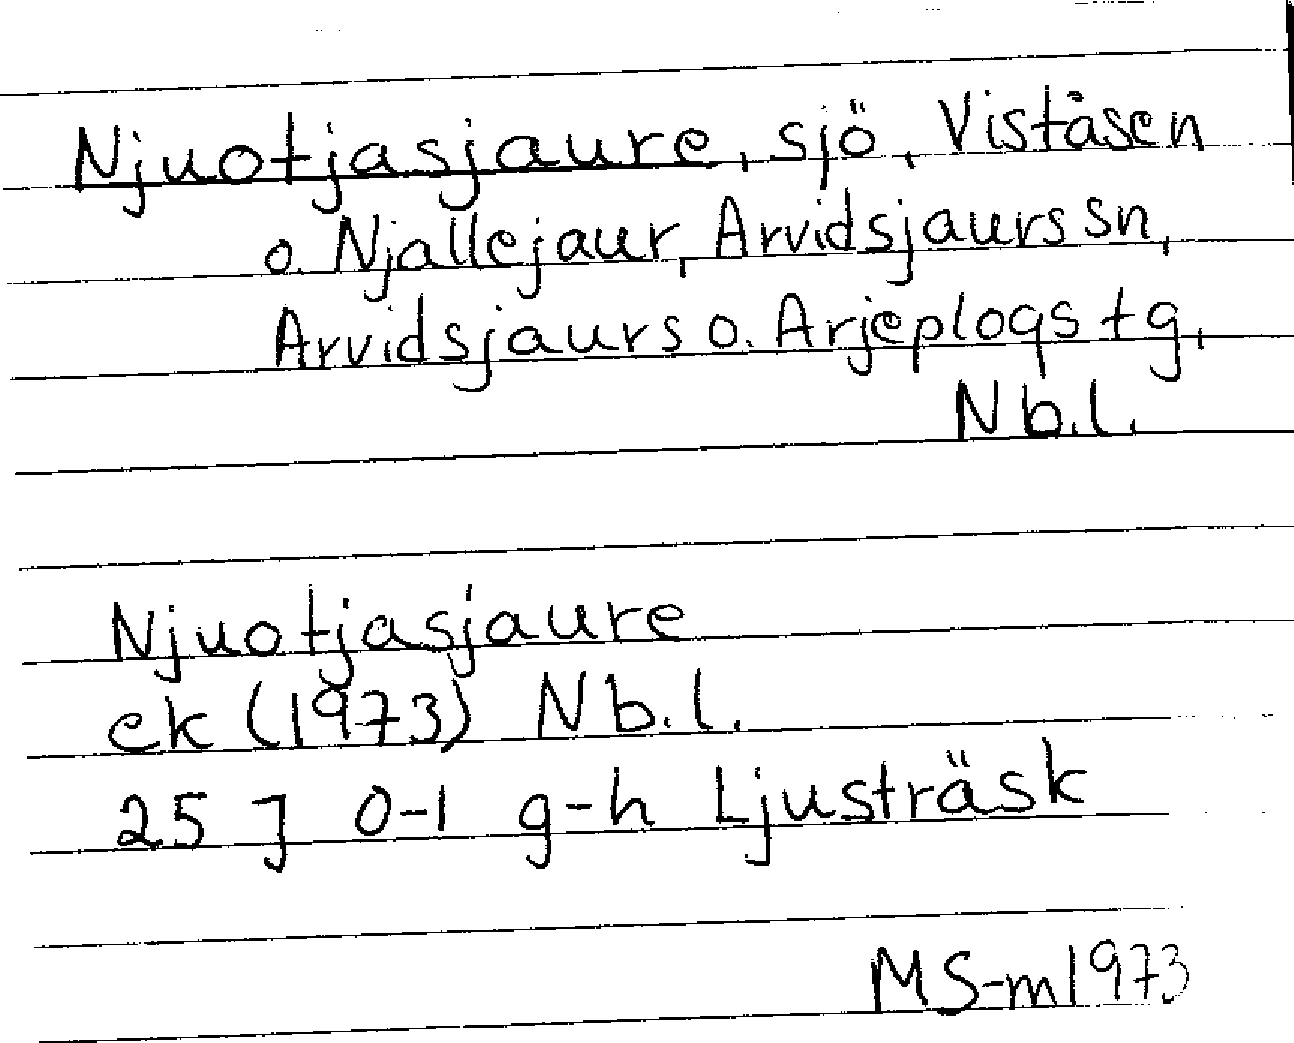 Njuotjasjaure, sjö, Viståsen
o. Njallejaur, Arvidsjaurs sn,
Arvidsjaurs o. Arjeplogs tg,
Nb.l.
Njuotjasjaure
ek (1973) Nb.l.
25 J 0-1 g-h Ljusträsk
MS-m 1973